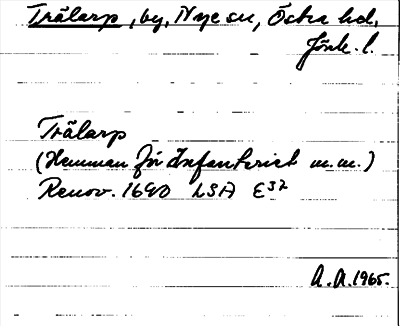 Trälarp, by, Nye sn, Östra hd,
Jönk. l.
Trälarp
(Hemman för Infanteriet m.m.)
Renov. 1690 LSA E32
A.A. 1965.